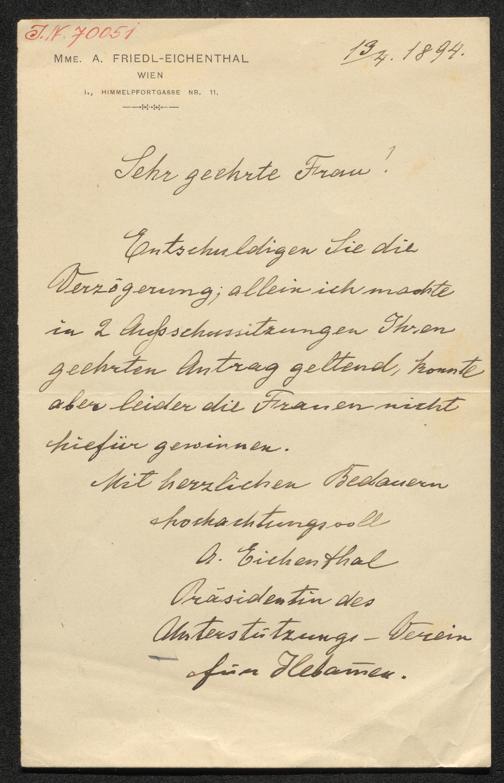 I.N. 70051
MME. A. FRIEDL-EICHENTHAL
WIEN
I., HIMMELPFORTGASSE NR. 11.
19/4. 1894.
Sehr geehrte Frau!
Entschuldigen Sie die
Verzögerung; allein ich machte
in 2 Ausschussitzungen Ihren
geehrten Antrag geltend, konnte
aber leider die Frauen nicht
hiefür gewinnen.
Mit herzlichen Bedauern
hochachtungsvoll
A. Eichenthal
Präsidentin des
Unterstützungs-Verein
für Hebam̅en.